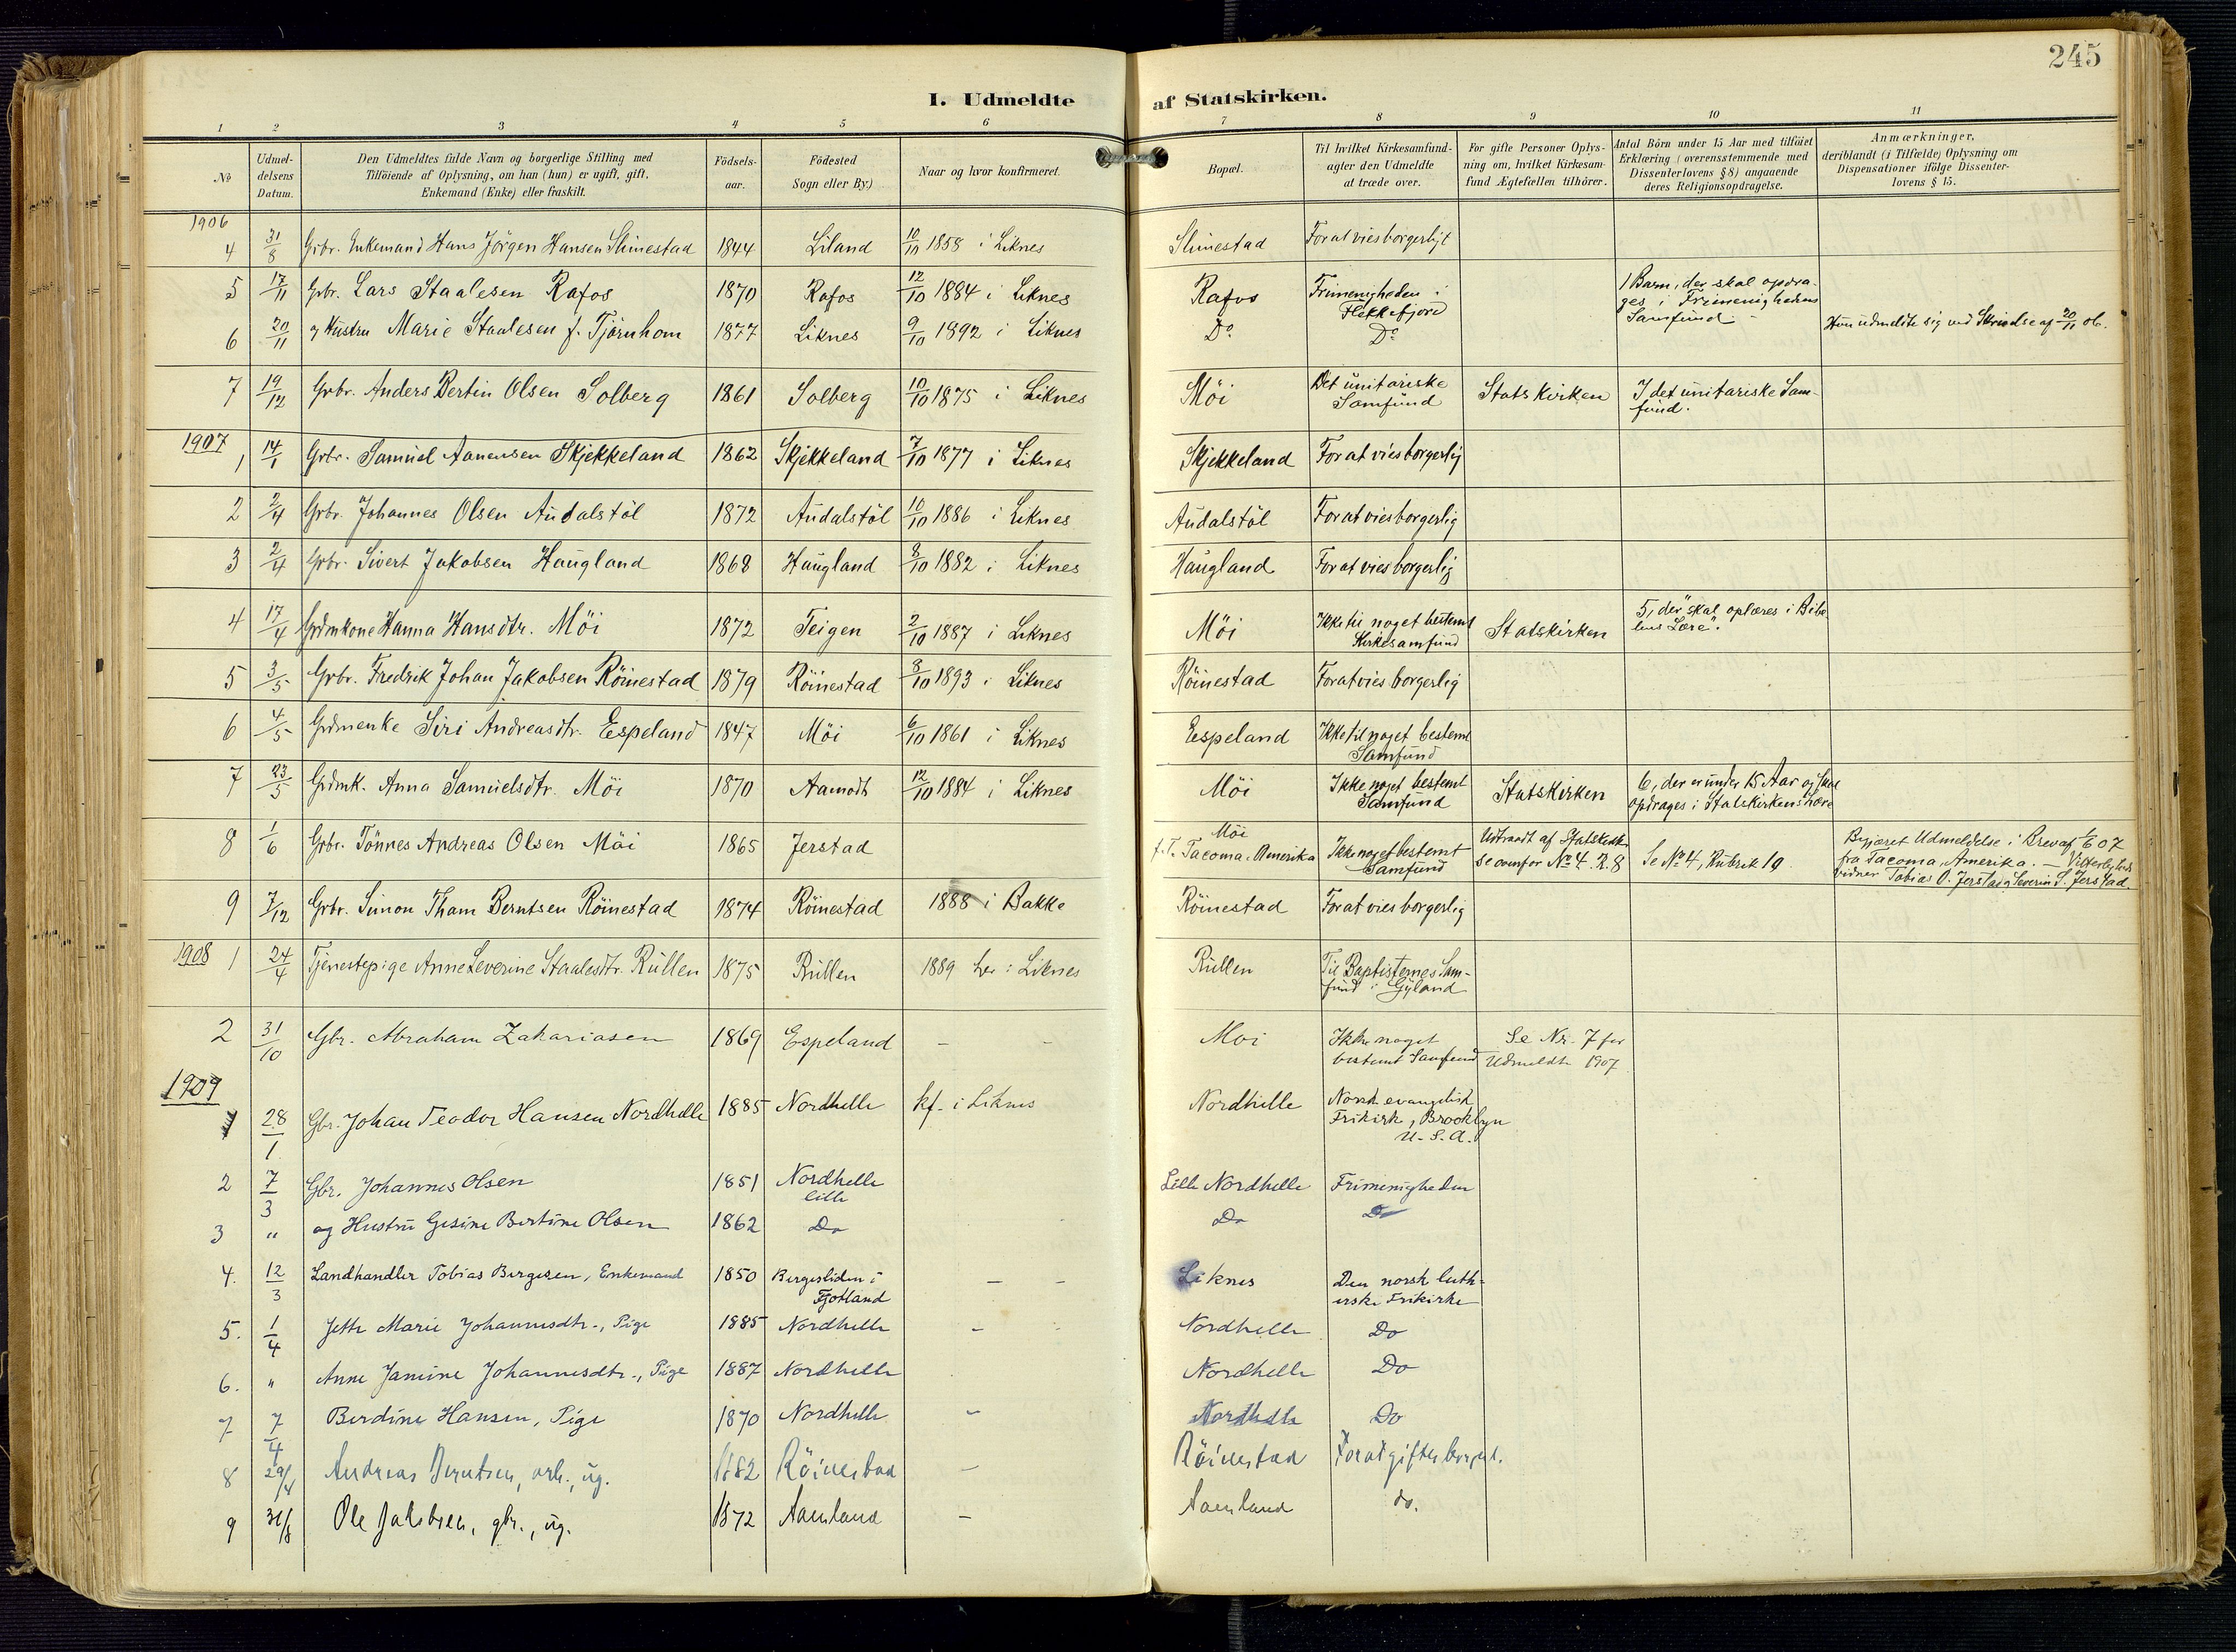 245
I. Udmeldte af Statskirken.
1 2 3 4 5 6 7 8 9 10 11
No
Udmel-
delsens
Datum.
Den Udmeldtes fulde Navn og borgerlige Stilling med
Tilföiende af Oplysning, om han (hun) er ugift, gift,
Enkemand (Enke) eller fraskilt.
Födsels-
aar.
Födested
Sogn eller By.)
Naar og hvor konfirmeret.
Bopæl.
Til hvilket Kirkesamfund
agter den Udmeldte
at træde over.
For gifte Personer Oplys-
ning om, hvilket Kirkesam-
fund Ægtefællen tilhörer.
Antal Börn under 15 Aar med tilföiet
Erklæring (overensstemmende med
Dissenterlovens § 8) angaaende
deres Religionsopdragelse.
Anmærkninger,
deriblandt (i Tilfælde) Oplysning om
Dispensationer ifölge Dissenter-
lovens § 15.
1906
4 31/8 Grbr. Enkemand Hans Jörgen Hansen Slimestad 1844 Liland 10/10 1858 i Liknes Slimestad For at vies borgerligt
5 17/11 Grbr. Lars Staalesen Rafos 1870 Rafos 12/10 1884 i Liknes Rafos Frimenigheden i Flekkefjord 1 Barn, der skal opdra-
ges i Frimenighedens
Samfund.
6 20/11 og Hustru Marie Staalesen f. Tjörnhom 1877 Liknes 9/10 1892 i Liknes Do Do Hun udmeldte sig ved Skrivelse af 20/11 06.
7 19/12 Grbr. Anders Bertin Olsen Solberg 1861 Solberg 10/10 1875 i Liknes Möi Det unitariske
Samfund Statskirken I det unitariske Sam-
fund.
1907
1 14/1 Grbr. Samuel Aanensen Skjekkeland 1862 Skjekkeland 7/10 1877 i Liknes Skjekkeland For at vies borgerlig
2 2/4 Grbr. Johannes Olsen Audalstöl 1872 Audalstöl 10/10 1886 i Liknes Audalstöl For at vies borgerlig
3 2/4 Grbr. Sivert Jakobsen Haugland 1868 Haugland 8/10 1882 i Liknes Haugland For at vies borgerlig
4 17/4 Grdmkone Hanna Hansdtr. Möi 1872 Teigen 2/10 1887 i Liknes Möi Ikke til noget bestemt
Kirkesamfund Statskirken 5, der "skal oplæres i Bibe
lens Lære".
5 3/5 Grbr. Fredrik Johan Jakobsen Röinestad 1879 Röinestad 8/10 1893 i Liknes Röinestad For at vies borgerlig
6 4/5 Grdmenke Siri Andreasdtr. Espeland 1847 Möi 6/10 1861 i Liknes Espeland Ikke til noget bestemt
Samfund
7 23/5 Grdmk. Anna Samuelsdtr. Möi 1870 Aamodt 12/10 1884 i Liknes Möi Ikke noget bestemt
Samfund Statskirken 6, der er under 15 Aar og skal
opdrages i Statskirkens Lære
8 1/6 Grbr. Tönnes Andreas Olsen Möi 1865 Jerstad Möi
f. T. Tacoma, Amerika Ikke noget bestemt
Samfund Udtraadt af Statskirken
se ovenfor No 4. R. 8 Se No 4, Rubrik 10 Begjæret Udmeldelse i Brev af 1/6 07
fra Tacoma, Amerika. — Vitterligheds
vidner Tobias O. Jerstad og Severin S. Jerstad.
9 7/12 Grbr. Simon Tham Berntsen Röinestad 1874 Röinestad 1888 i Bakke Röinestad For at vies borgerlig
1908
1 24/4 Tjenestepige Anne Severine Staalesdtr. Rullen 1875 Rullen 1889 her i Liknes Rullen Til Baptisternes Sam-
fund i Gyland
2 31/10 Gbr. Abraham Zakariasen 1869 Espeland - - Moi Ikke noget
bestemt Samfund Se Nr. 7 for
Udmeldte 1907
1909
1 28/1 Gbr. Johan Teodor Hansen Nordhelle 1885 Nordhelle kf. i Liknes Nordhelle Norsk evangelisk
Frikirk, Brooklyn
U. S. A.
2 7/3 Gbr. Johannes Olsen 1851 Nordhelle
lille Lille Nordhelle Frimenigheden
3 " og Hustru Gesine Bertine Olsen 1862 Do Do Do
4. 12/3 Landhandler Tobias Birgesen, Enkemand 1850 Birgesliden i
Fjotland - - Liknes Den norsk luth-
erske Frikirke
5. 1/4 Jette Marie Johannesdtr., Pige 1885 Nordhelle - Nordhelle Do
6. " Anne Jamine Johannesdtr., Pige 1887 Nordhelle Nordhelle Do
7 7/4 Berdine Hansen, Pige 1870 Nordhelle - Nordhelle Do
8 29/4 Andreas Berntsen, arb., ug. 1882 Röinestad - Röinestad For at giftes borgerl.
9 31/8 Ole Jakobsen, gbr., ug. 1872 Aamland - Aamland do.